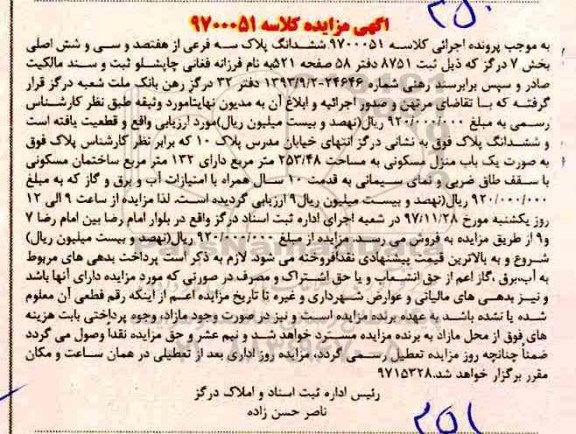 ۲۵۰
آگهی مزایده کلاسه ۹۷۰۰۰۵۱
به موجب پرونده اجرائی کلاسه ۹۷۰۰۰۵۱ ششدانگ پلاک سه فرعی از هفتصد و سی و شش اصلی
بخش ۷ درگز که ذیل ثبت ۸۷۵۱ دفتر ۵۸ صفحه ۵۲۱به نام فرزانه فغانی چاپشلو ثبت و سند مالکیت
صادر و سپس برابرسند رهنی شماره ۲۴۶۴۶-۱۳۹۳/۹/۲ دفتر ۳۲ درگز رهن بانک ملت شعبه درگز قرار
گرفته که با تقاضای مرتهن و صدور اجرائیه و ابلاغ آن به مدیون نهایتامورد وثیقه طبق نظر کارشناس
رسمی به مبلغ ۹۲۰/۰۰۰/۰۰۰ ریال(نهصد و بیست میلیون ریال)مورد ارزیابی واقع و قطعیت یافته است
و ششدانگ پلاک فوق به نشانی درگز انتهای خیابان مدرس پلاک ۱۰ که برابر نظر کارشناس پلاک فوق
به صورت یک باب منزل مسکونی به مساحت ۲۵۳/۴۸ متر مربع دارای ۱۳۲ متر مربع ساختمان مسکونی
با سقف طاق ضربی و نمای سیمانی به قدمت ۱۰ سال همراه با امتیازات آب و برق و گاز که به مبلغ
۹۲۰/۰۰۰/۰۰۰ ریال(نهصد و بیست میلیون ریال۹ ارزیابی گردیده است. لذا مزایده از ساعت ۹ الی ۱۲
روز یکشنبه مورخ ۹۷/۱۱/۲۸ در شعبه اجرای اداره ثبت اسناد درگز واقع در بلوار امام رضا بین امام رضا ۷
و۹ از طریق مزایده به فروش می رسد. مزایده از مبلغ ۹۲۰/۰۰۰/۰۰۰ ریال(نهصد و بیست میلیون ریال)
شروع و به بالاترین قیمت پیشنهادی نقدافروخته می شود. لازم به ذکر است پرداخت بدهی های مربوط
به آب،برق ،گاز اعم از حق انشعاب و یا حق اشتراک و مصرف در صورتی که مورد مزایده دارای آنها باشد
و نیز بدهی های مالیاتی و عوارض شهرداری و غیره تا تاریخ مزایده اعم از اینکه رقم قطعی آن معلوم
شده یا نشده باشد به عهده برنده مزایده است و نیز در صورت وجود مازاد، وجوه پرداختی بابت هزینه
های فوق از محل مازاد به برنده مزایده مسترد خواهد شد و نیم عشر و حق مزایده نقداً وصول می گردد
ضمناً چنانچه روز مزایده تعطیل رسمی گردد، مزایده روز اداری بعد از تعطیلی در همان ساعت و مکان
مقرر برگزار خواهد شد.۹۷۱۵۳۲۸
رئیس اداره ثبت اسناد و املاک درگز
ناصر حسن زاده
۲۵۱